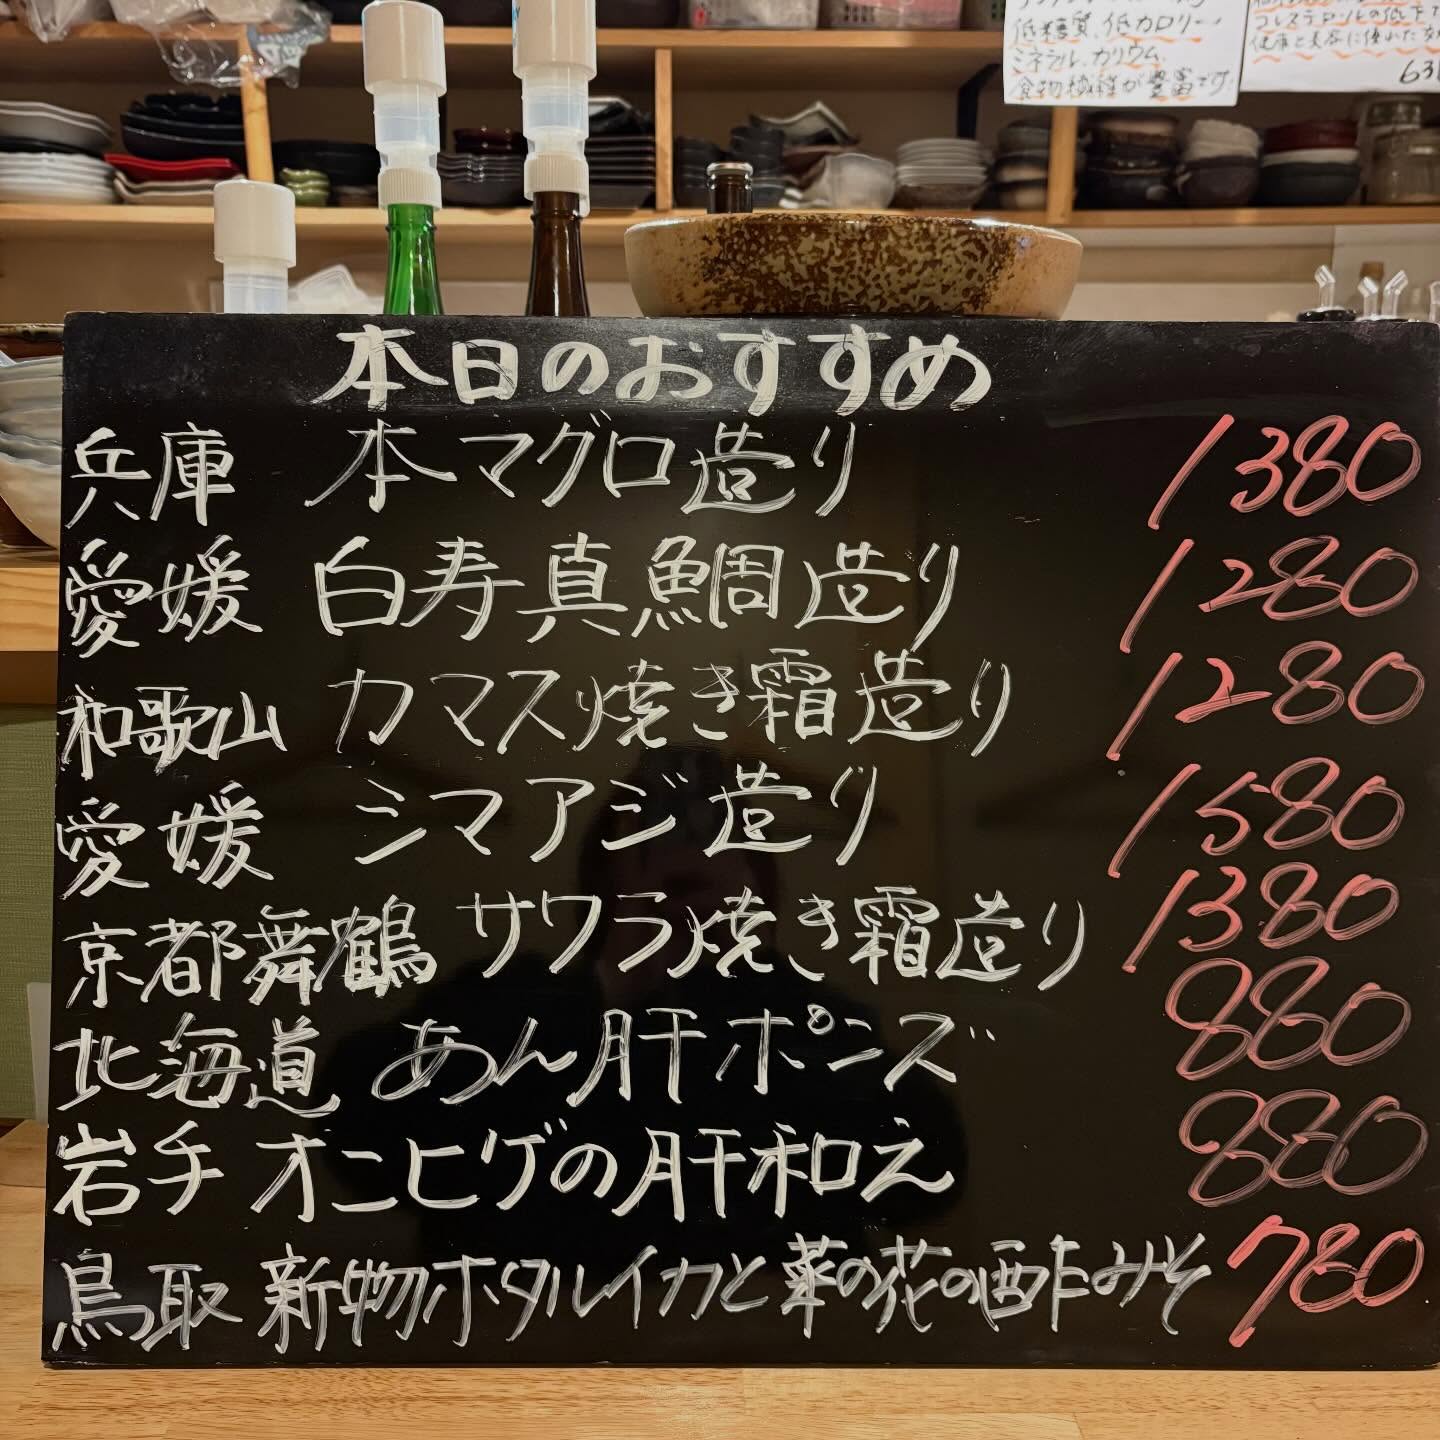 低糖質、低カロリー
ミネラル、カリウム、
食物繊維が豊富です
コレステロールの低下
本日のおすすめ
兵庫 本マグロ造り 1380
愛媛 白寿真鯛造り 1280
和歌山 カマス焼き霜造り 1280
愛媛 シマアジ造り 1580
京都舞鶴 サワラ焼き霜造り 1380
北海道 あん肝ポンズ 880
岩手 オニヒゲの肝和え 880
鳥取 新物ホタルイカと菜の花の酢みそ 780